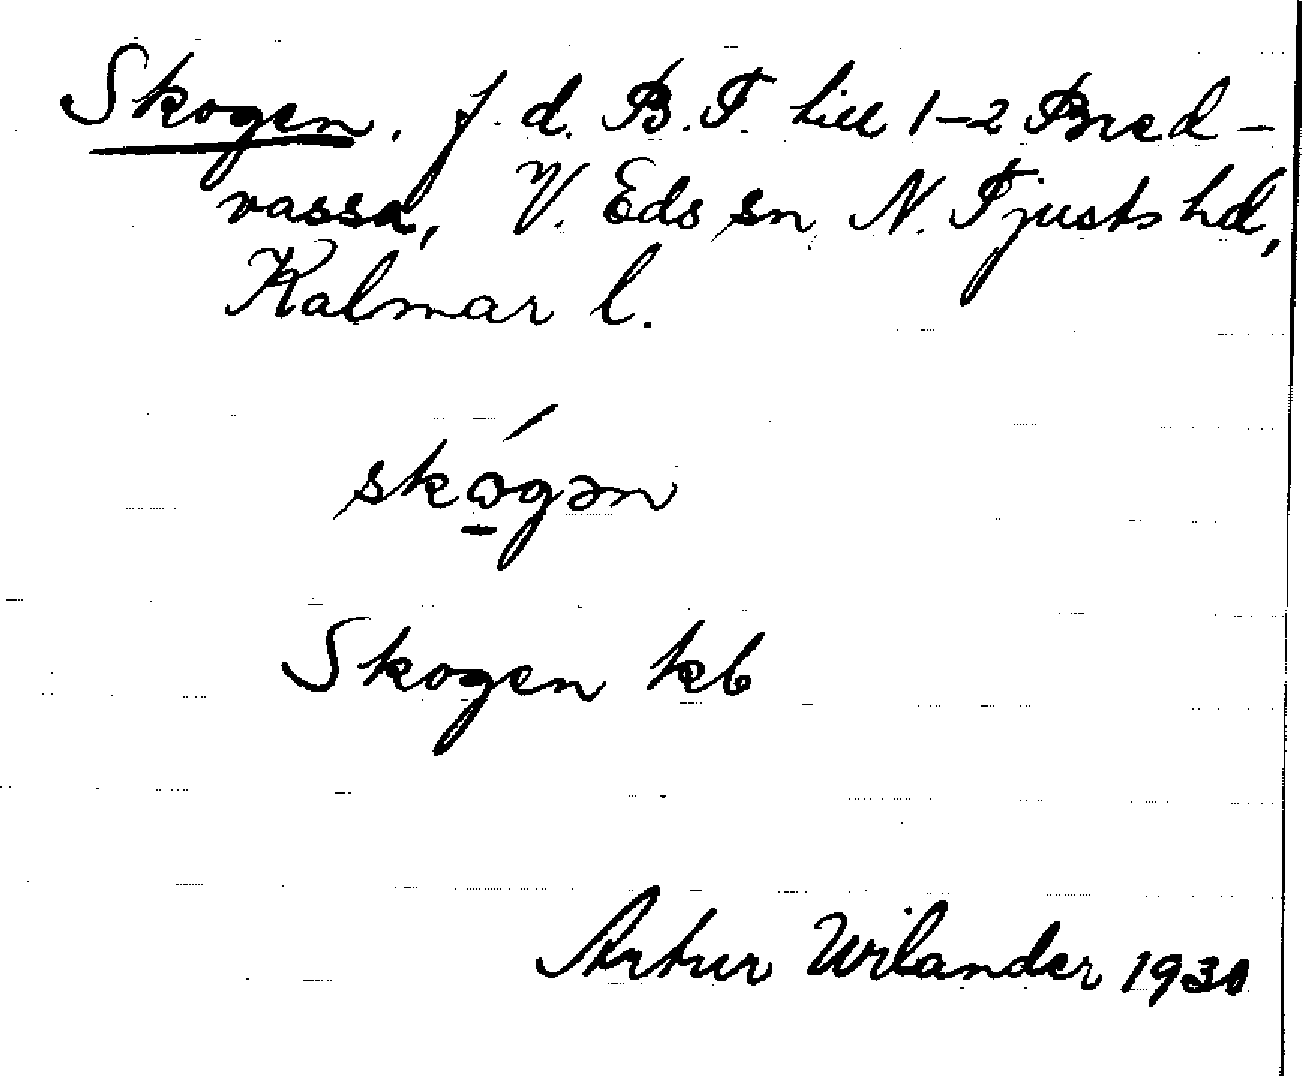 Skogen. f. d. B. T. till 1-2 Bred-
vassa, V. Eds sn, N. Tjusts hd,
Kalmar l.
skó̱gən
Skogen kb
Artur Wilander 1930